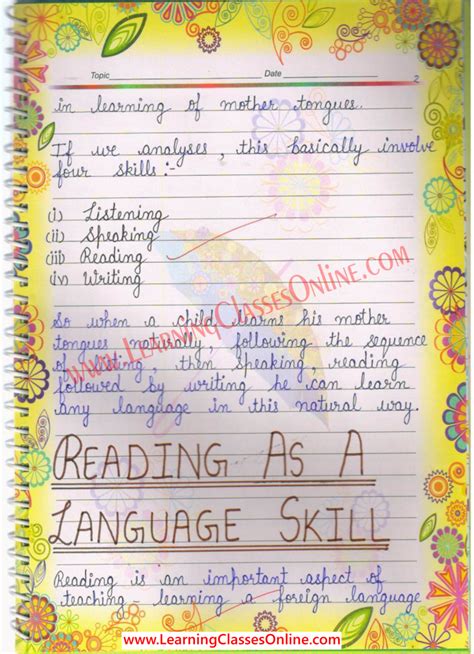 Topic Date
2
in learning of mother tongues.
If we analyses, this basically involve
four skills :-
(i) Listening
(ii) Speaking
(iii) Reading
(iv) Writing
www.LearningClassesOnline.com
So when a child learns his mother
tongues naturally, following the sequence
of listing, then speaking, reading
followed by writing he can learn
any language in this natural way.
READING AS A
LANGUAGE SKILL
Reading is an important aspect of
teaching - learning a foreign language
www.LearningClassesOnline.com